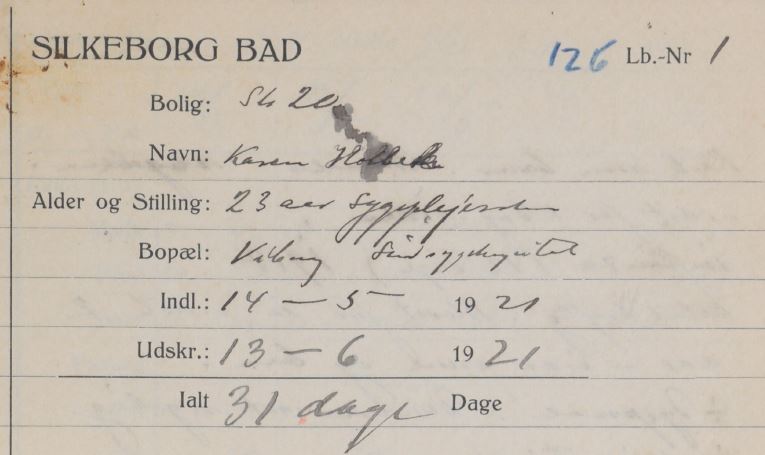 SILKEBORG BAD 126 Lb.-Nr 1
Bolig: St 20
Navn: Karen Holbek
Alder og Stilling: 23 aar Sygeplejerske
Bopæl: Viborg Sindsygehospital
Indl.: 14 - 5 1921
Udskr.: 13 - 6 1921
Ialt 31 dage Dage